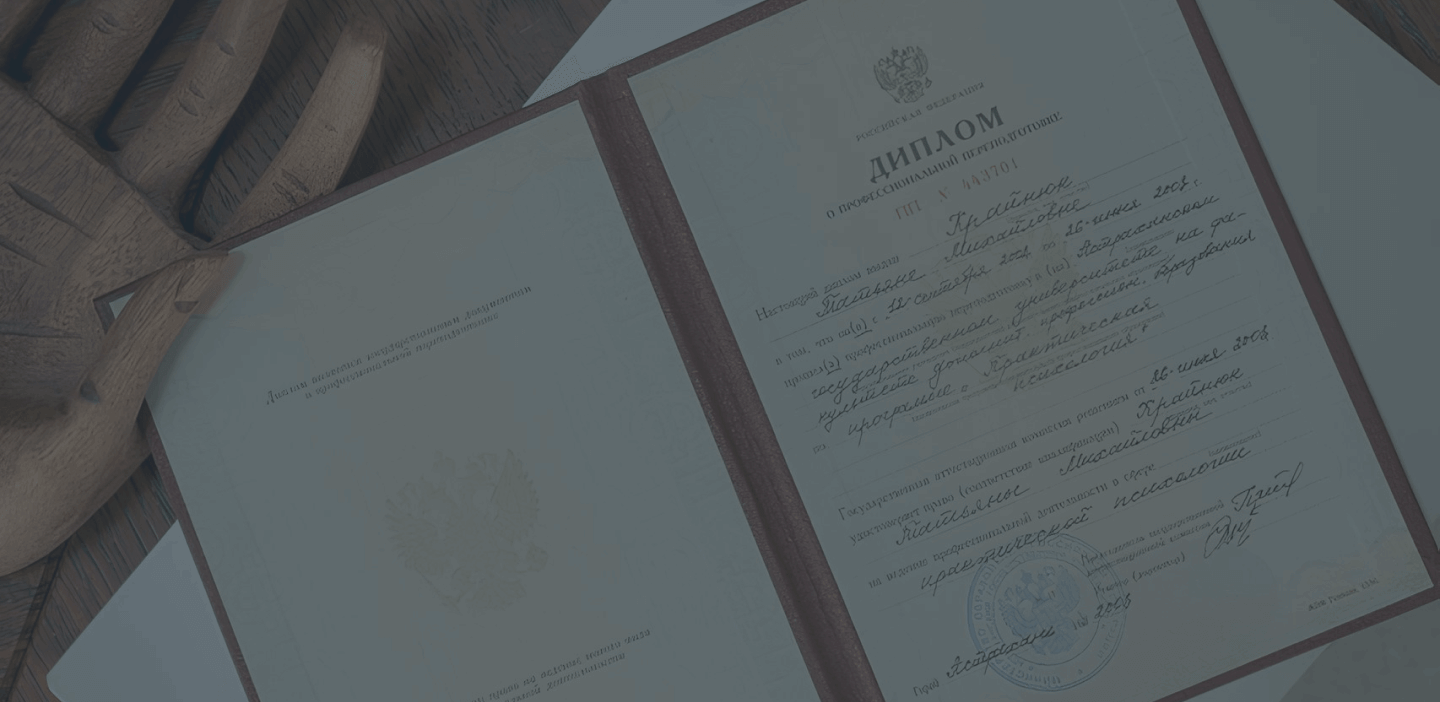 Диплом является государственным документом
о профессиональной переподготовке
право на ведение нового вида
деятельности
РОССИЙСКАЯ ФЕДЕРАЦИЯ
ДИПЛОМ
О ПРОФЕССИОНАЛЬНОЙ ПЕРЕПОДГОТОВКЕ
ПП № 443701
Настоящий диплом выдан Крайнюк
Татьяне Михайловне
в том, что он(а) с 12 сентября 2003 по 26 июня 2003 г.
прошел(а) профессиональную переподготовку в (на) Астраханском
государственном университете на фа-
культете дополнит. профессион. образования
по программе « Практическая
психология
Государственная аттестационная комиссия решением от 26 июня 2003
удостоверяет право (соответствие квалификации) Крайнюк
Татьяны Михайловны
на ведение профессиональной деятельности в сфере
практической психологии
Председатель государственной
аттестационной комиссии
Ректор (директор)
Город Астрахань 2003